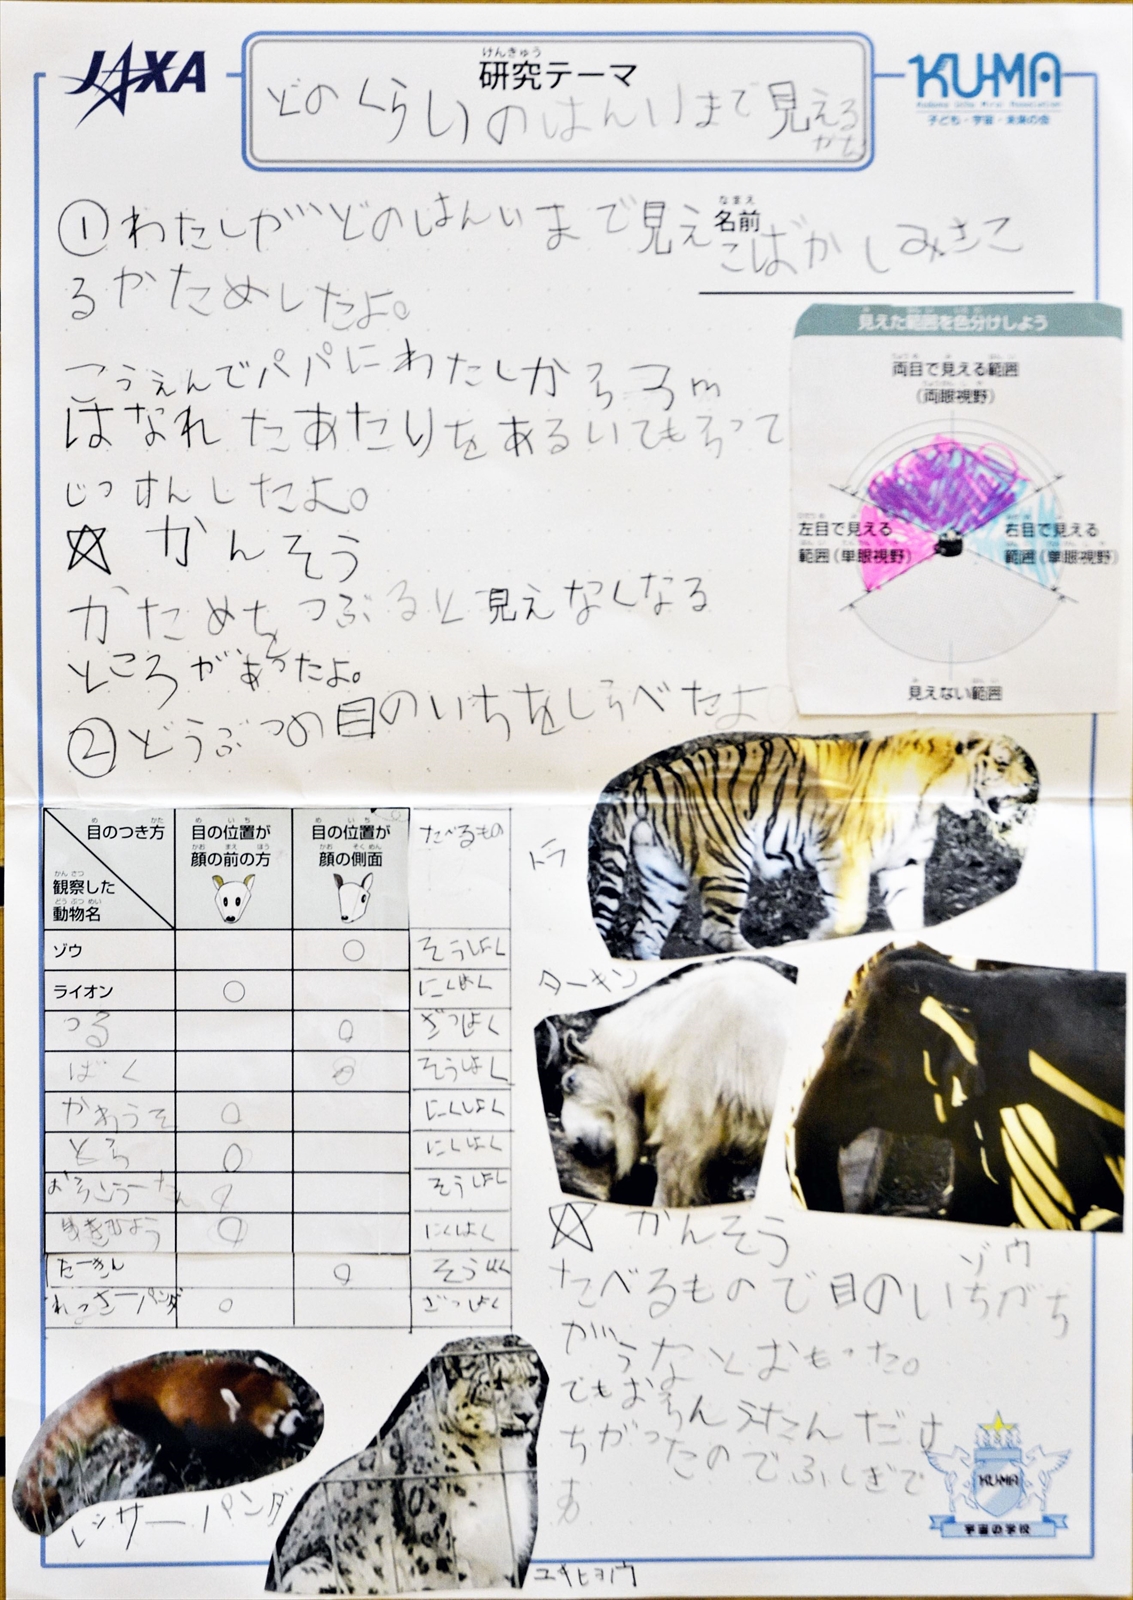 JAXA
けんきゅう
研究テーマ
どのくらいのはんいまで見える
から
KU-MA
Kodomo Uchu Mirai Association
子ども・宇宙・未来の会
なまえ
名前
こばかしみきこ
① わたしがどのはんいまで見え
るかためしたよ。
こうえんでパパにわたしから3m
はなれたあたりをあるいてもらって
じっけんしたよ。
☆ かんそう
かためをつぶると見えなくなる
ところがあったよ。
② どうぶつの目のいちをしらべたよ
見えた範囲を色分けしよう
両目で見える範囲
(両眼視野)
左目で見える
範囲(単眼視野)
右目で見える
範囲(単眼視野)
見えない範囲
目のつき方
観察した
動物名
目の位置が
顔の前の方
目の位置が
顔の側面
たべるもの
ゾウ ○ そうしょく
ライオン ○ にくしょく
つる ○ ざっしょく
ばく ○ そうしょく
かわうそ ○ にくしょく
とら ○ にくしょく
○ そうしょく
ゆきひょう ○ にくしょく
たーきん ○ そうしょく
れっさーパンダ ○ ざっしょく
トラ
ターキン
ゾウ
☆ かんそう
たべるもので目のいちがち
がうなとおもった。
でもおらんうたんだけ
ちがったのでふしぎで
す
レッサーパンダ
ユキヒョウ
KU-MA
宇宙の学校